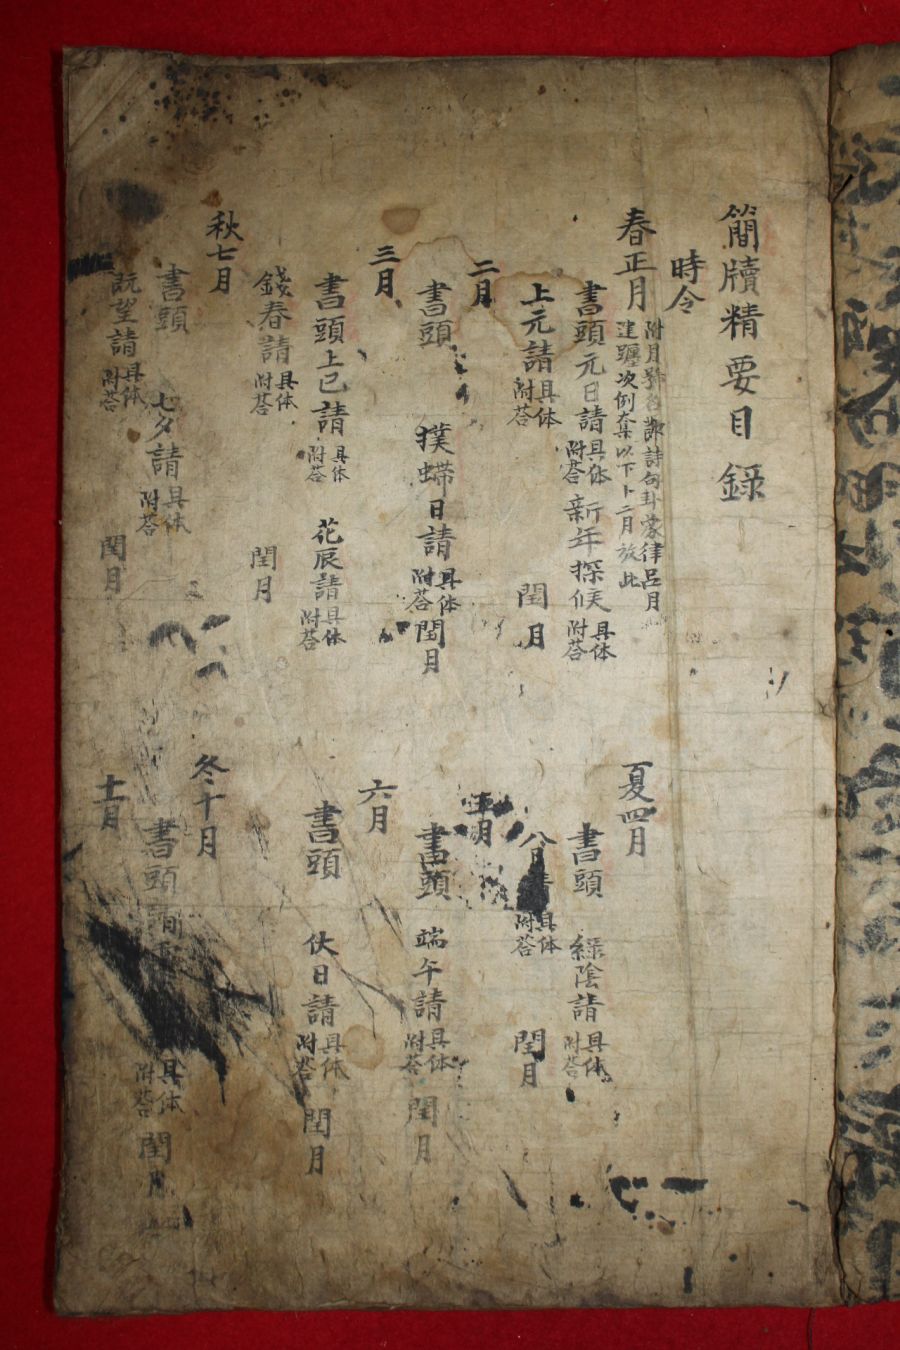 簡牘精要目錄
時令
春正月 附月號名 詩句卦 律呂月建躔次例套以下十二月放此
書頭 元日請 具体附答 新年探候 具体附答
上元請 具体附答 閏月
二月
書頭 撲蝶日請 具体附答 閏月
三月
書頭 上巳請 具体附答 花辰請 具体附答
餞春請 具体附答 閏月
夏四月
書頭 綠陰請 具体附答
八月請 具体附答 閏月
五月
書頭 端午請 具体附答 閏月
六月
書頭 伏日請 具体附答 閏月
秋七月
書頭 七夕請 具体附答
既望請 具体附答 閏月
冬十月
書頭 具体附答 閏月
十一月